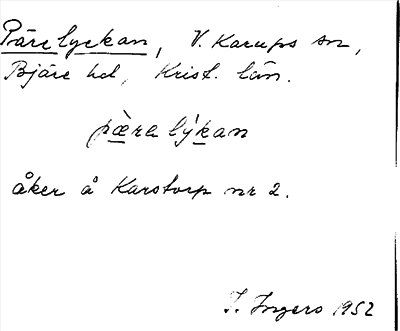 Pärelyckan, V. Karups sn,
Bjäre hd, Krist. län.
pæ̀ra lýkan
åker å Karstorp nr 2.
I. Ingers 1952